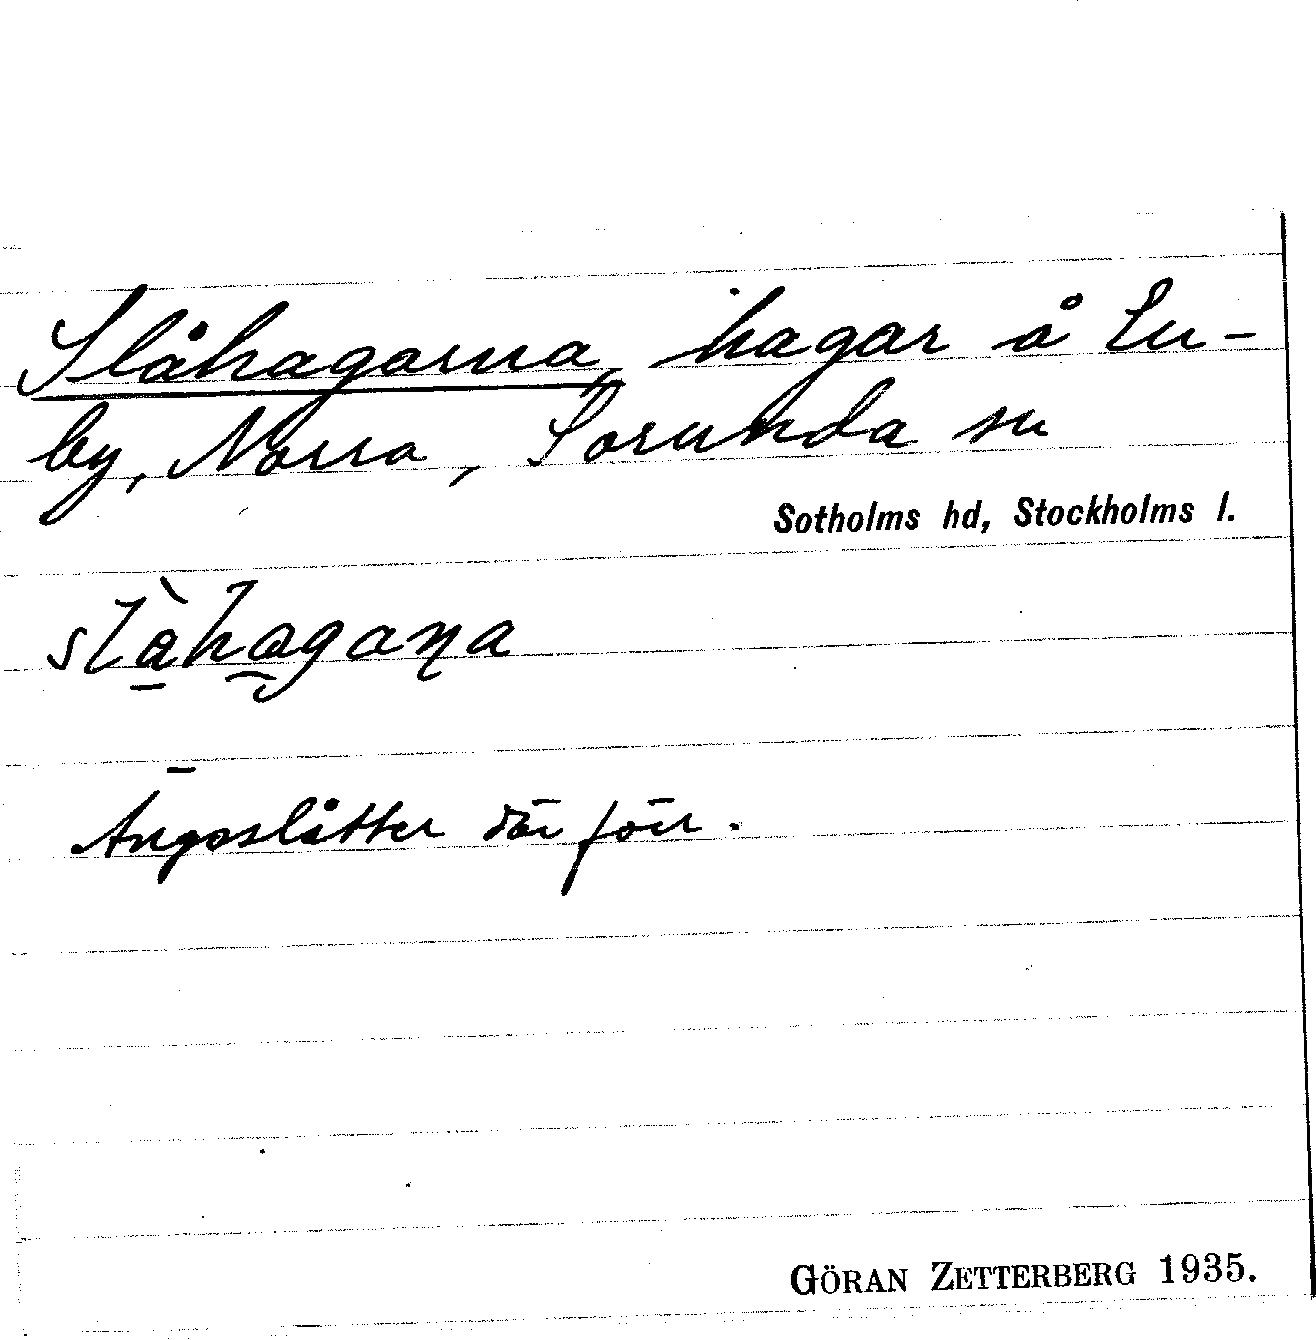 Slåhagarna, hagar å Eu-
by, Norra, Sorunda sn
Sotholms hd, Stockholms l.
slàhagaṇa
Ängsslåtter där förr.
GÖRAN ZETTERBERG 1935.